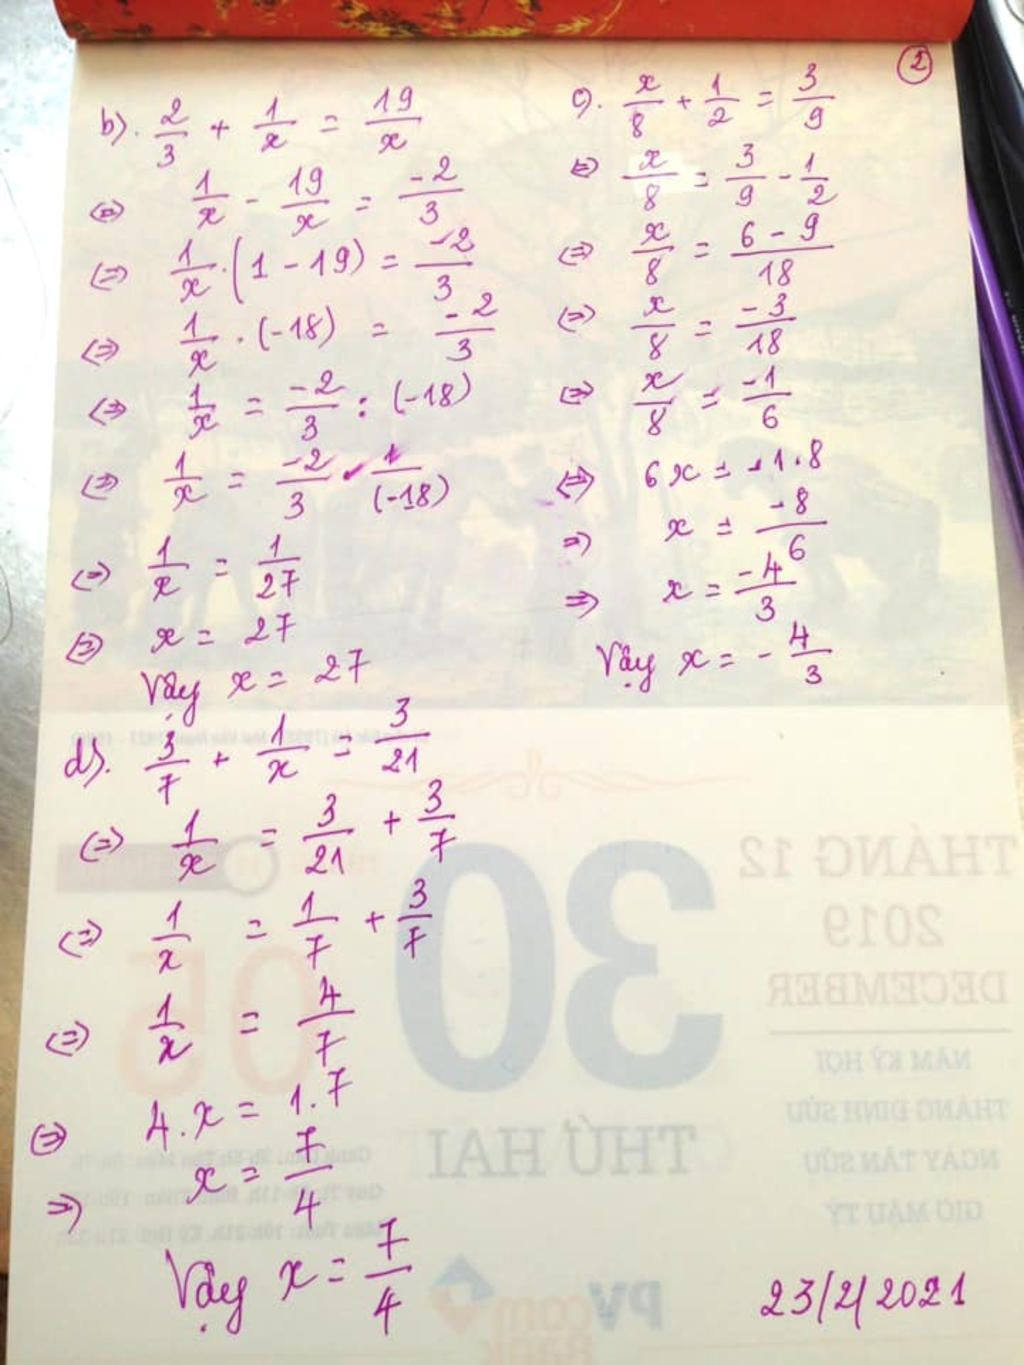 2
b). 2/3 + 1/x = 19/x
(=) 1/x - 19/x = -2/3
(=) 1/x . (1 - 19) = -2/3
(=) 1/x . (-18) = -2/3
(=) 1/x = -2/3 : (-18)
(=) 1/x = -2/3 . 1/(-18)
(=) 1/x = 1/27
(=) x = 27
Vậy x = 27
c). x/8 + 1/2 = 3/9
(=) x/8 = 3/9 - 1/2
(=) x/8 = 6 - 9/18
(=) x/8 = -3/18
(=) x/8 = -1/6
(=) 6x = -1.8
=) x = -8/6
=) x = -4/3
Vậy x = - 4/3
d). 3/7 + 1/x = 3/21
(=) 1/x = 3/21 + 3/7
(=) 1/x = 1/7 + 3/7
(=) 1/x = 4/7
(=) 4.x = 1.7
=) x = 7/4
Vậy x = 7/4
23/2/2021
30
05
THÁNG 12
2019
DECEMBER
NĂM KỶ HỢI
THÁNG ĐINH SỬU
NGÀY TÂN SỬU
GIỜ MẬU TÝ
THỨ HAI
PV
com
BANK